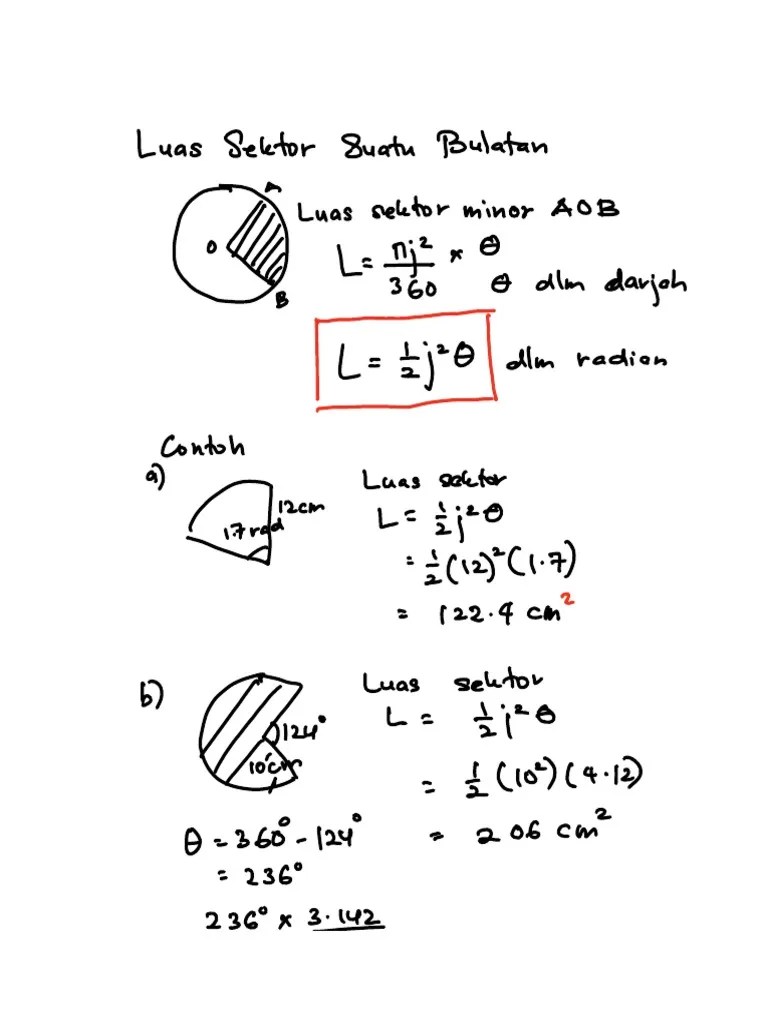 Luas Sektor Suatu Bulatan
A
O
B
Luas sektor minor AOB
L = πj²/360 × θ
θ dlm darjah
L = ½j²θ dlm radian
Contoh
a)
12cm
1.7 rad
Luas sektor
L = ½j²θ
= ½(12)²(1.7)
= 122.4 cm²
b)
124°
10cm
Luas sektor
L = ½j²θ
= ½(10²)(4.12)
= 206 cm²
θ = 360° - 124°
= 236°
236° × 3.142